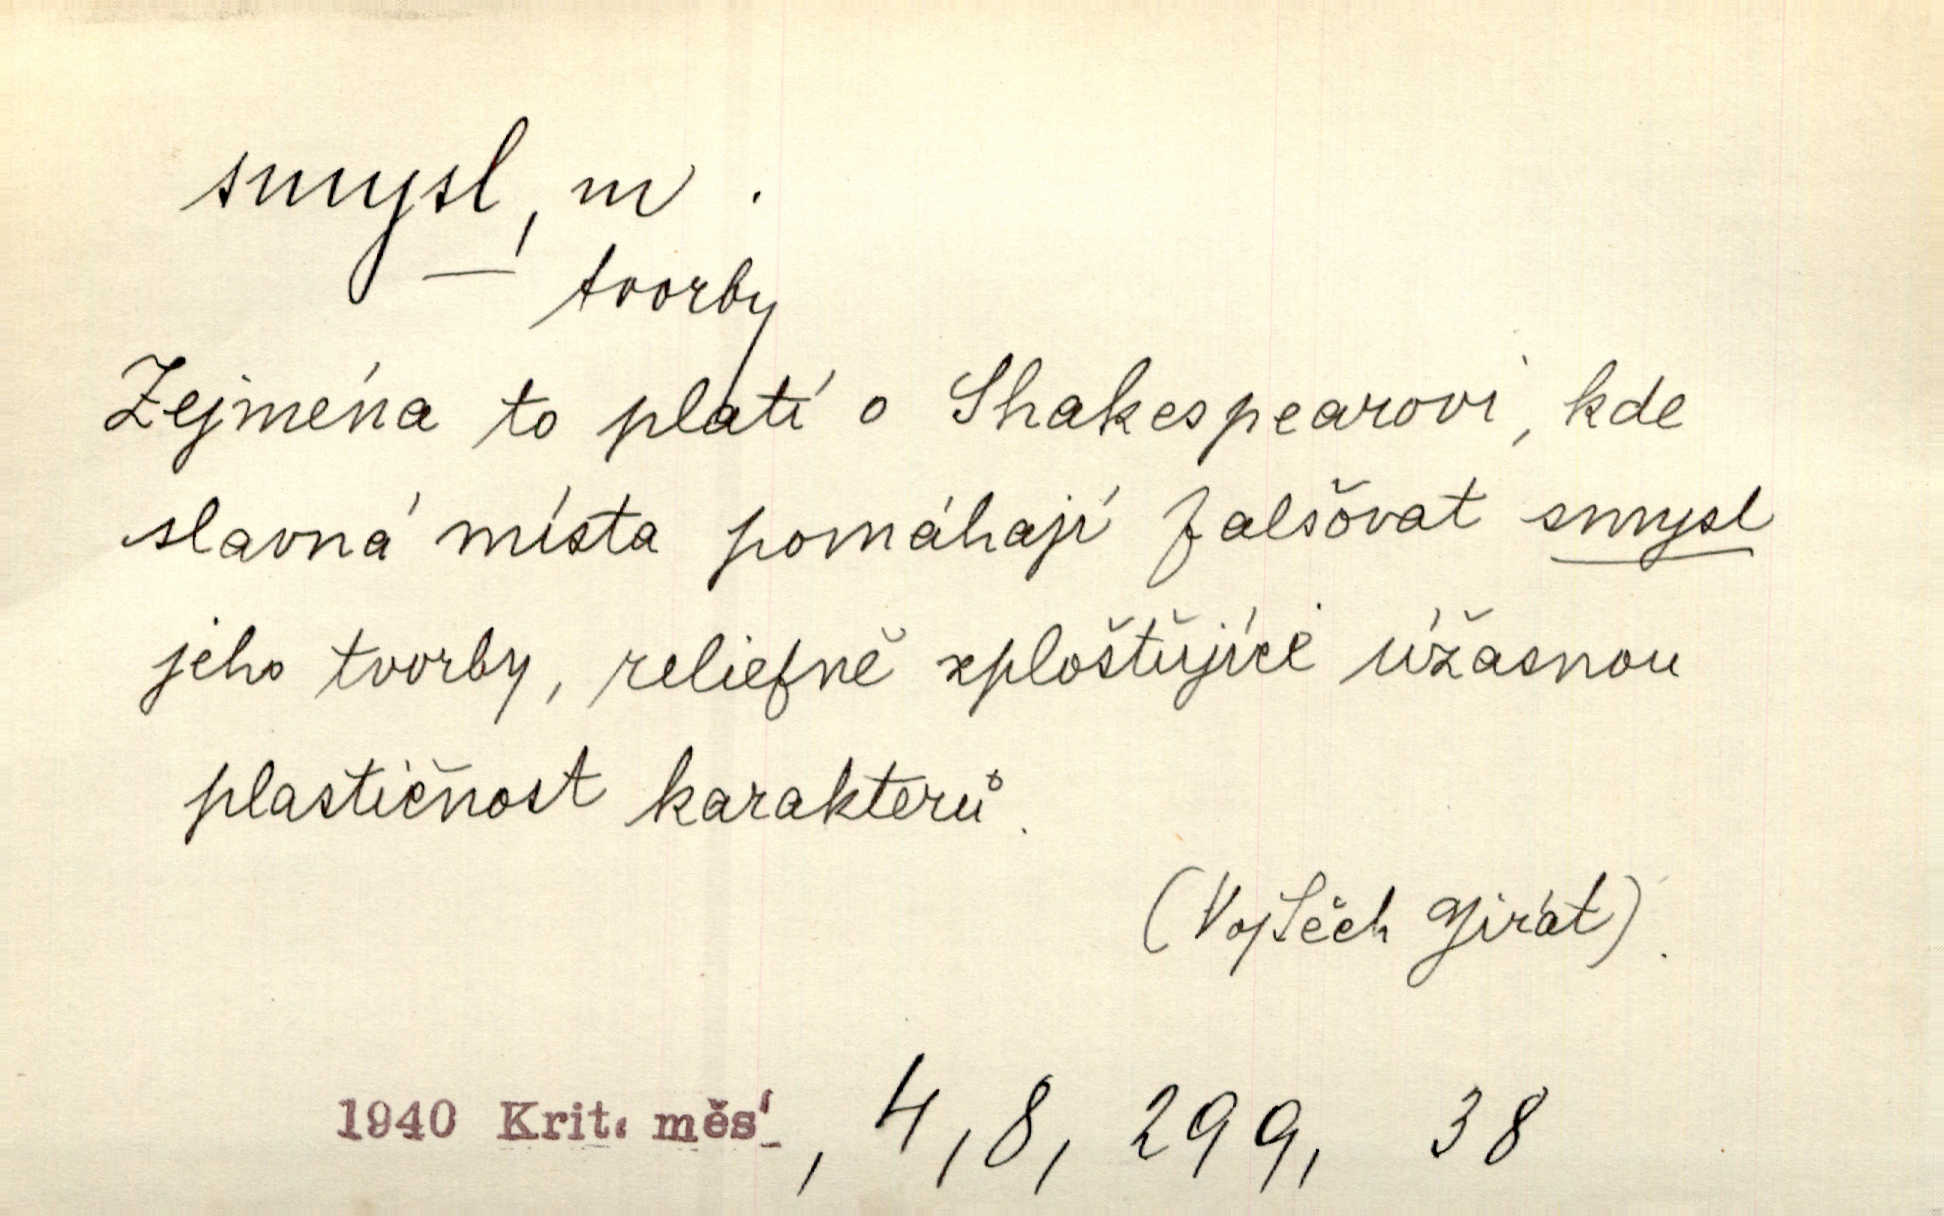 smysl, m.
tvorby
Zejména to platí o Shakespearovi, kde
slavná místa pomáhají falšovat smysl
jeho tvorby, reliefně zplošťující úžasnou
plastičnost karakterů.
(Vojtěch Jirát).
1940 Krit. měs., 4, 8, 299, 38